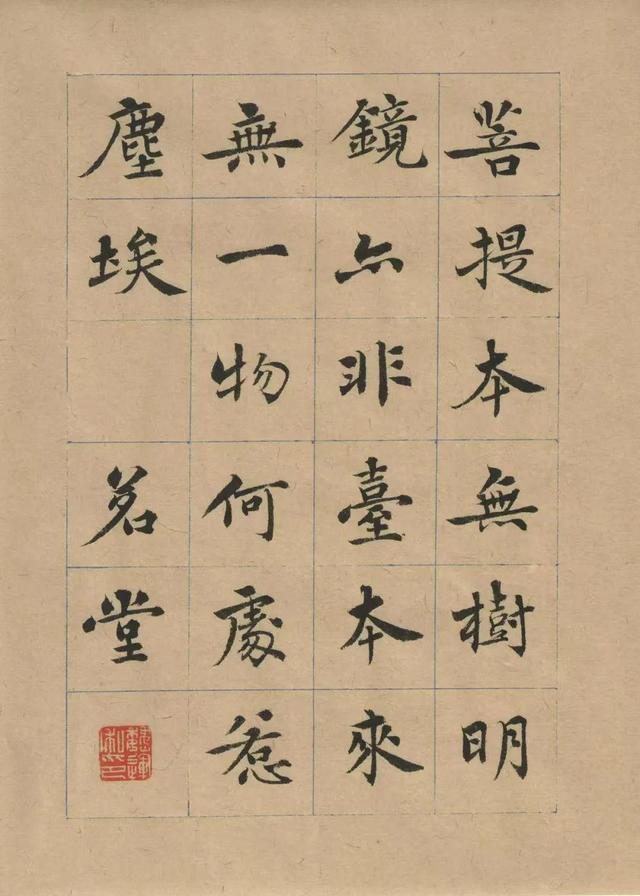 菩提本無樹明
鏡亦非臺本來
無一物何處惹
塵埃
茗堂